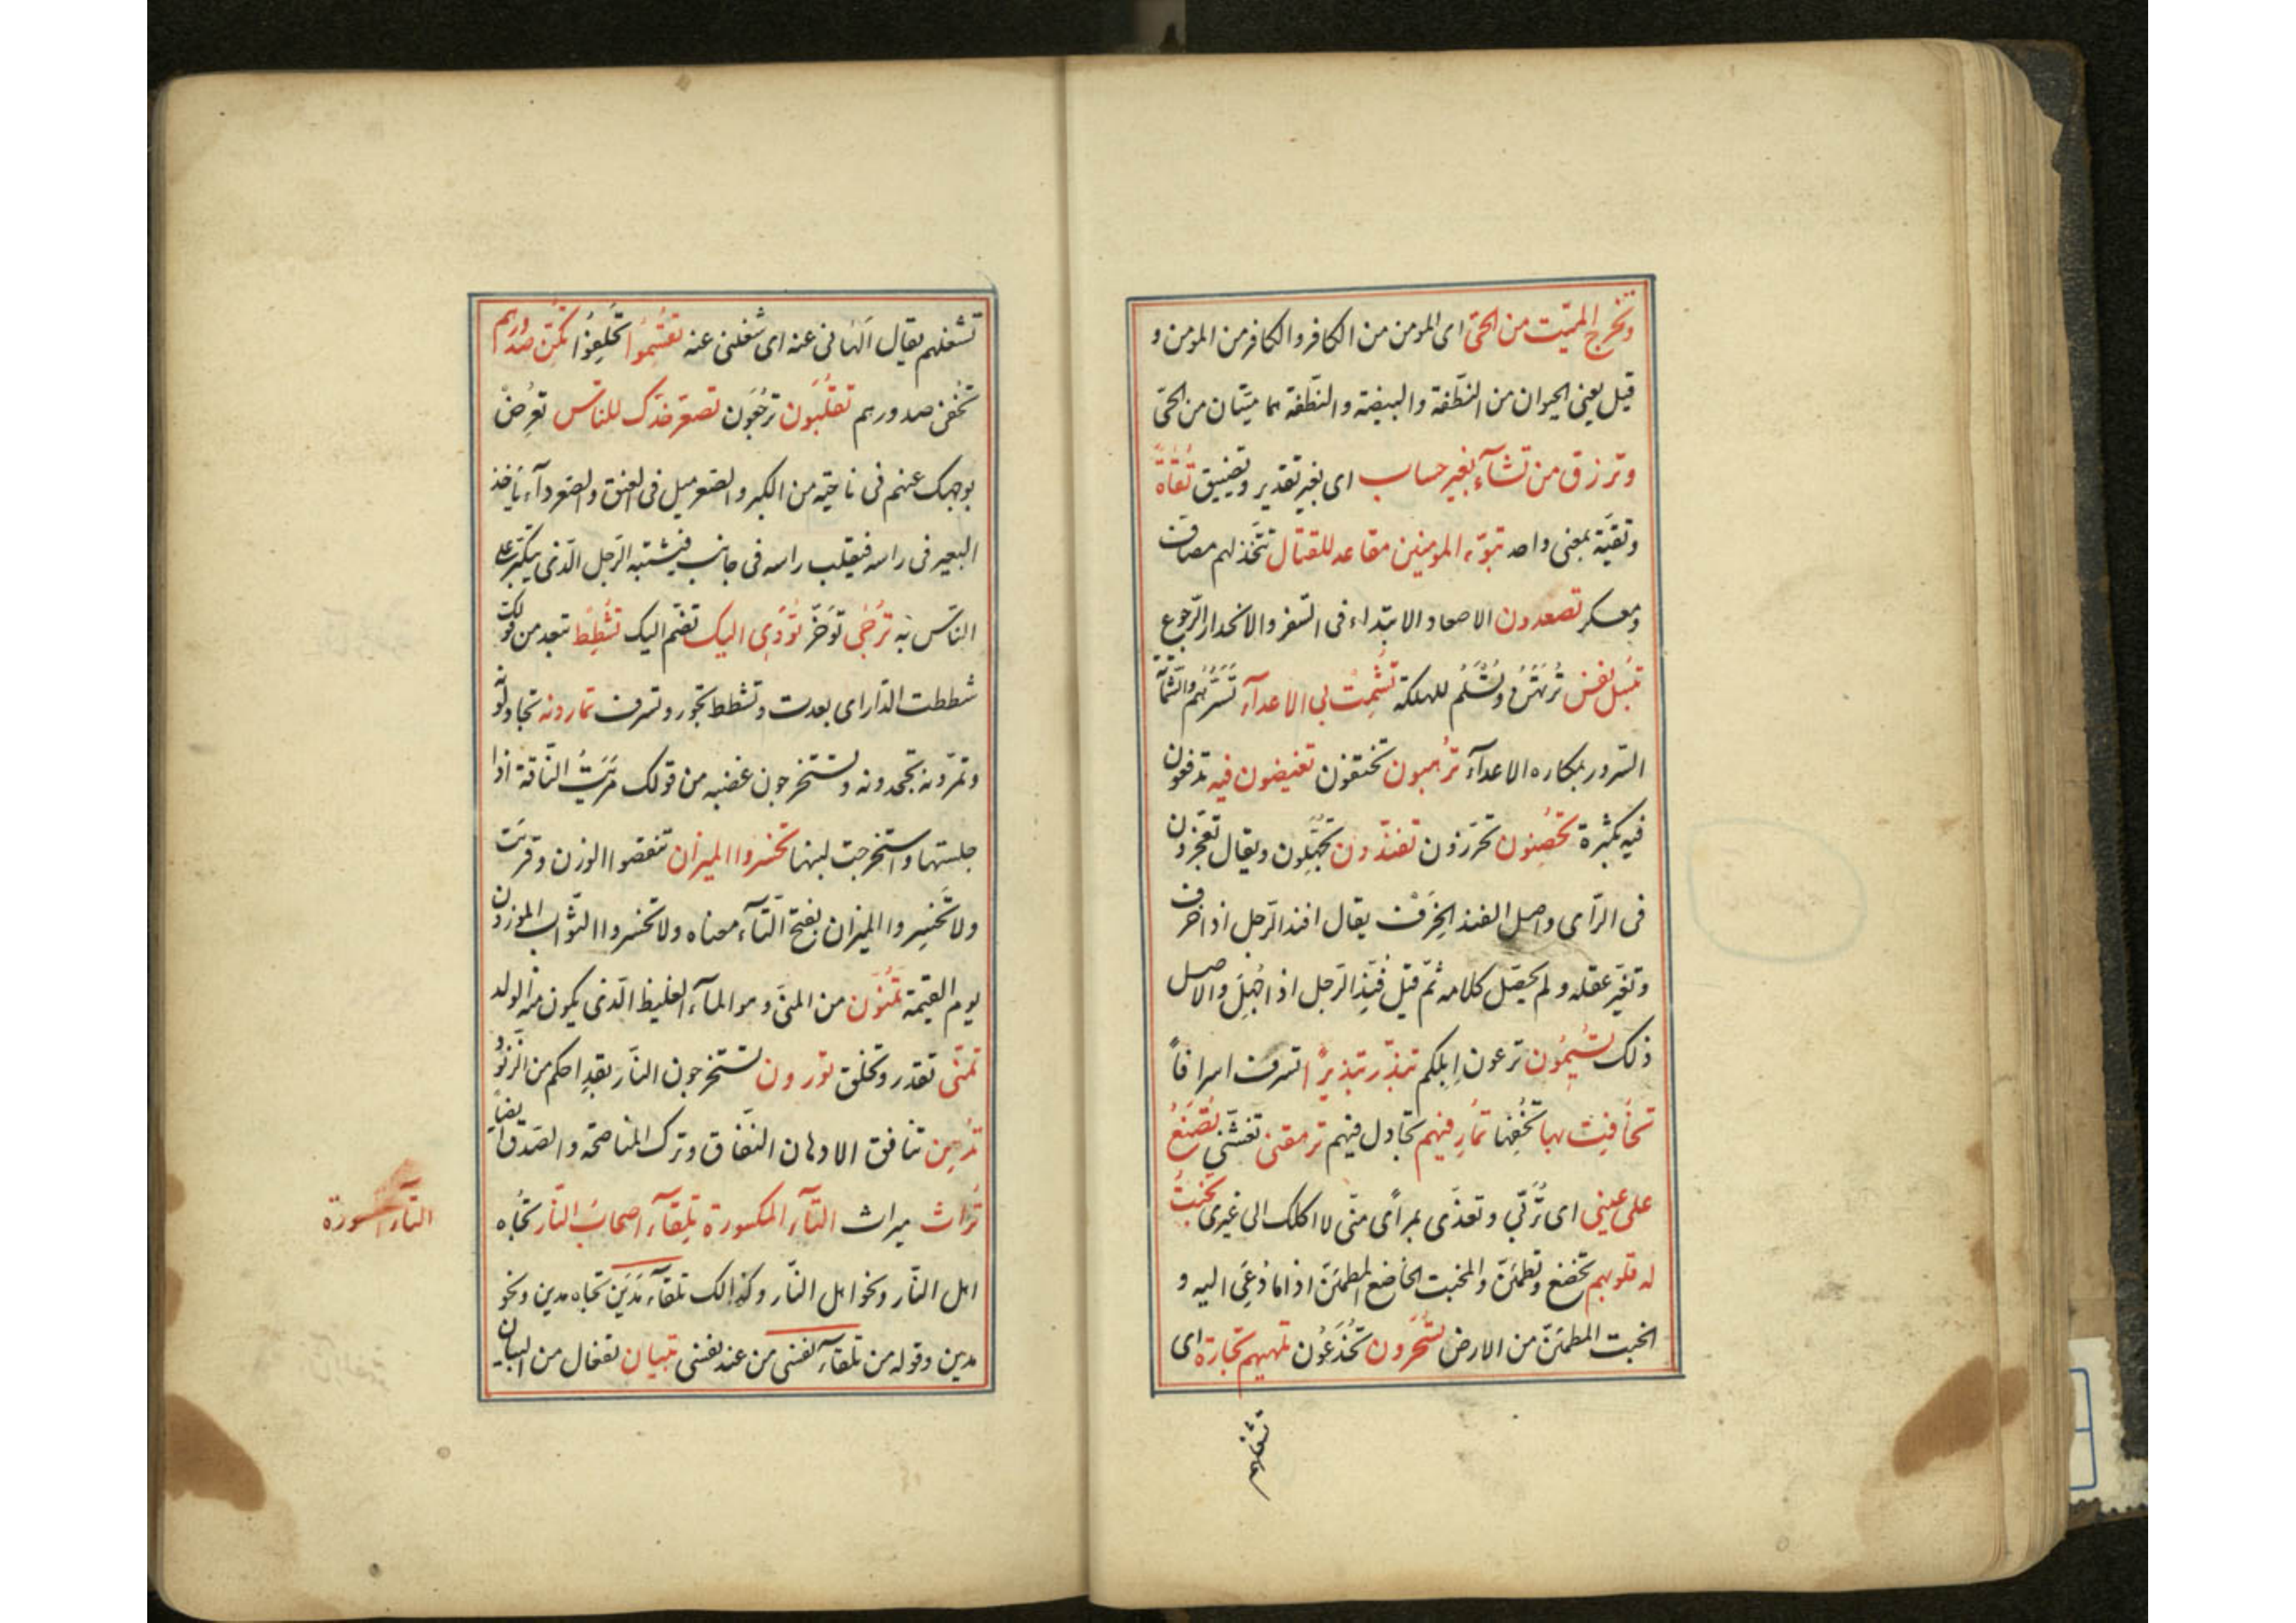 وتخرج الميّت من الحیّ ای المومن من الکافر والکافر من المومن و
قیل یعنی الحیوان من النّطفة والبیضة والنّطفة هما میّتان من الحیّ
وترزق من تشآء بغیر حساب ای بغیر تقدیر وتضییق تُقٰاةً
وتقیّة بمعنی واحد تبوّء المومنین مقاعد للقتال تتّخذ لهم مصافّ
ومعسکر تصعدون الاصعاد الابتداء فی السّفر والانحدار الرّجوع
تبسل نفس تُرْتَهَنُ وتُسْلَمُ للهلکة تُشْمِتْ بی الاعدآء تَسُرُّهُم والشّماتة
السّرور بمکاره الاعدآء تُرهبون تخیفون تفیضون فیه تدفعون
فیه بکثرة تحصِنون تحرزون تفنّدون تجهّلون ویقال تعجّزون
فی الرّای واصل الفند الخَرَف یقال افند الرّجل اذا خرف
وتغیّر عقله ولم یحصل کلامه ثمّ قیل فُنِّد الرّجل اذا جُهِّل والاصل
ذلک تُسیمُون ترعون اِبلکم تبذّر تبذیرًا تسرف اسرافًا
تُخافِت بها تُخْفِها تمُارِ فیهم تجادل فیهم ترهقنی تغشّنی تُصْنَعُ
علی عینی ای تُربّی وتغذّی بمرأًی منّی لا اکلک الی غیری تُخْبِتُ
له قلوبهم تخضع وتطمئنّ والمخبت الخاضع المطمئنّ اذا ما دُعِیَ الیه و
الخبت المطمئنّ من الارض تُسْحَرون تُخْدَعُون تلهیهم تجارة ای
تشغلهم
تشغلهم یقال اَلهٰانی عنه ای شغلنی عنه تُقْسِمُوا تَحْلِفُوا تُکِنّ صدورهم
تخفی صدورهم تقلبُون ترجَعُون تصعّر خدّک للناس تعرِضْ
بوجهک عنهم فی ناحیّة من الکبر والصّعر میل فی العنق والصّعر دآء یَأخذ
البعیر فی راسه فیقلب راسه فی جانب فیشبّه الرّجل الّذی یتکبّر علی
النّاس به تُرْجی تُؤَخّر تُؤوِی الیک تضمّ الیک تُشْطِطْ تبعد من قولک
شططت الدّار ای بعدت وتشطط تجور وتسرف تمارونه تجادلونه
وتمرونه تجحدونه وتستخرجون غضبه من قولک مَرَیْتُ النّاقة اذا
حلبتها واستخرجت لبنها تخسروا المیزان تنقصوا الوزن وقرئت
ولا تَخْسِروا المیزان بفتح التّآء معناه ولا تخسروا الثّواب الموزون
یوم القیٰمة تُمْنُون من المنیّ وهو المآء الغلیظ الّذی یکون منه الولد
تمنّی تقدر وتخلق تورون تستخرجون النّار بقدِاحکم من الزّنُود
تُدهِن تنافق الادهان النّفاق وترک المناصحة والصّدق ایضًا
تُراث میراث التّآء المکسورة تِلقآء اصحٰاب النّار تجُاه
اهل النّار ونحو اهل النّار وکذالک تلقآء مَدْیَن تجاه مدین ونحو
مدین وقوله من تلقآء نفسی من عند نفسی تبیان تفعال من البیان
التّآء المکسورة